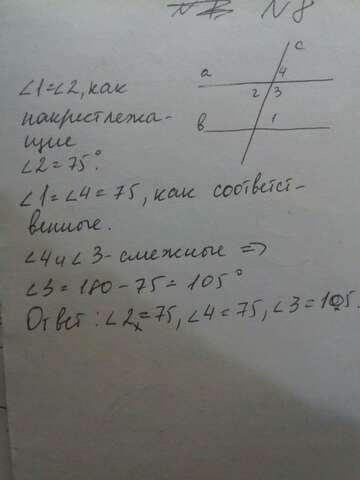 N 8
∠1=∠2, как
накрестлежа-
щие
∠2=75°.
∠1=∠4=75, как соответст-
венные.
∠4 и ∠3 - смежные =>
∠3=180-75=105°
Ответ: ∠2=75, ∠4=75, ∠3=105.
c
a
4
2
3
b
1